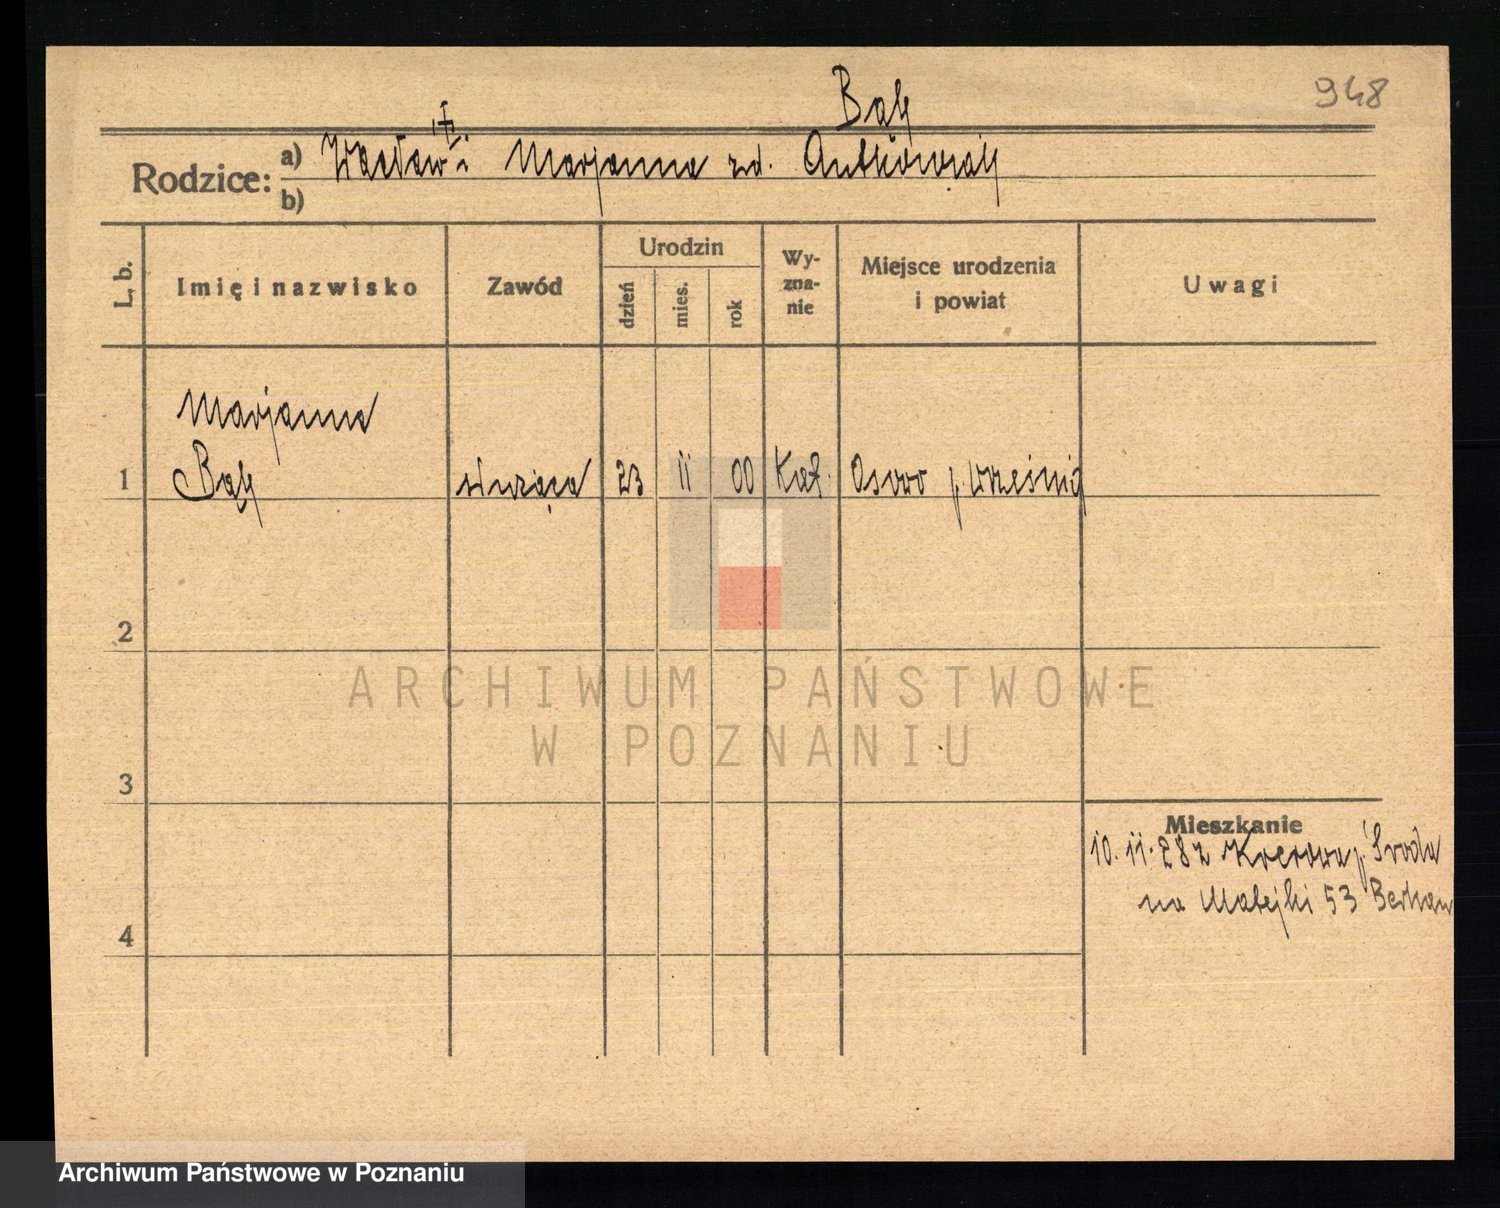 948
Bąk
Rodzice: a) Wacław i Marjanna zd. Antkowiak
b)
L. b. Imię i nazwisko Zawód Urodzin dzień mies. rok Wy-zna-nie Miejsce urodzenia i powiat Uwagi
Marjanna
1 Bąk służąca 23 II 00 Kat. Osowo p. Września
2
3
4
Mieszkanie
10. 11. 28 z p. Środa
na Matejki 53
ARCHIWUM PAŃSTWOWE
W POZNANIU
Archiwum Państwowe w Poznaniu